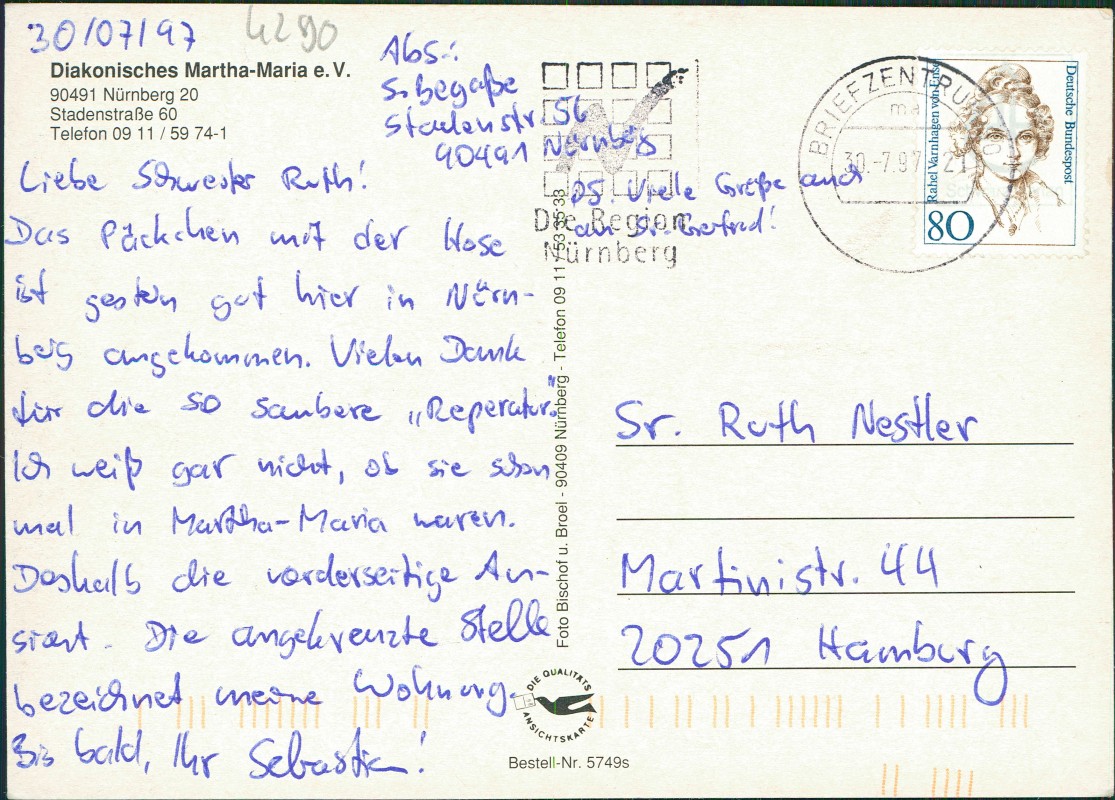 30/07/97
4290
Diakonisches Martha-Maria e. V.
90491 Nürnberg 20
Stadenstraße 60
Telefon 09 11 / 59 74-1
Abs.:
S. Begaße
Stadenstr. 56
90491 Nürnberg
Liebe Schwester Ruth!
Das Päckchen mit der Hose
ist gestern gut hier in Nürn-
berg angekommen. Vielen Dank
für die so saubere „Reperatur."
Ich weiß gar nicht, ob sie schon
mal in Martha-Maria waren.
Deshalb die vorderseitige An-
sicht. Die angekreuzte Stelle
bezeichnet meine Wohnung.
Bis bald, Ihr Sebastian!
PS. Viele Grüße auch
an Sr. Gertrud!
Die Region
Nürnberg
BRIEFZENTRUM
ma
30.-7.97
Deutsche Bundespost
Rahel Varnhagen von Ense
80
Foto Bischof u. Broel - 90409 Nürnberg - Telefon 09 11 / 53 35 33
Sr. Ruth Nestler
Martinistr. 44
20251 Hamburg
DIE QUALITÄTS
ANSICHTSKARTE
Bestell-Nr. 5749s